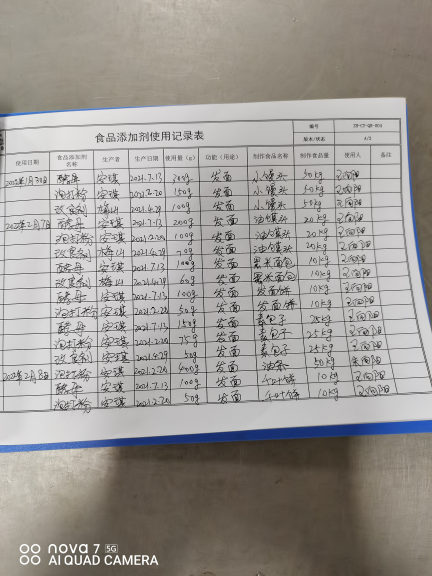 食品添加剂使用记录表
编号
版本/状态 A/0
使用日期 食品添加剂名称 生产者 生产日期 使用量(g) 功能(用途) 制作食品名称 制作食品量 使用人 备注
2022年1月30日 酵母 安琪 2021.7.13 200g 发面 小馒头 50kg 王向阳
泡打粉 安琪 2021.2.20 150g 发面 小馒头 50kg 王向阳
改良剂 梅山 2021.4.29 100g 发面 小馒头 50kg 王向阳
2022年2月7日 酵母 安琪 2021.7.13 200g 发面 油馒头 20kg 王向阳
泡打粉 安琪 2021.2.20 100g 发面 油馒头 20kg 王向阳
改良剂 梅山 2021.4.29 70g 发面 油馒头 20kg 王向阳
酵母 安琪 2021.7.13 100g 发面 黑米面包 10kg 王向阳
改良剂 梅山 2021.4.29 60g 发面 黑米面包 10kg 王向阳
酵母 安琪 2021.7.13 100g 发面 发面饼 10kg 王向阳
泡打粉 安琪 2021.2.20 50g 发面 发面饼 10kg 王向阳
酵母 安琪 2021.7.13 150g 发面 素包子 25kg 王向阳
泡打粉 安琪 2021.2.20 75g 发面 素包子 25kg 王向阳
改良剂 安琪 2021.4.29 50g 发面 素包子 25kg 王向阳
2022年2月8日 泡打粉 安琪 2021.2.20 400g 发面 油条 50kg 王向阳
酵母 安琪 2021.7.13 100g 发面 10kg 王向阳
泡打粉 安琪 2021.2.20 50g 发面 10kg 王向阳
nova 7 5G
AI QUAD CAMERA